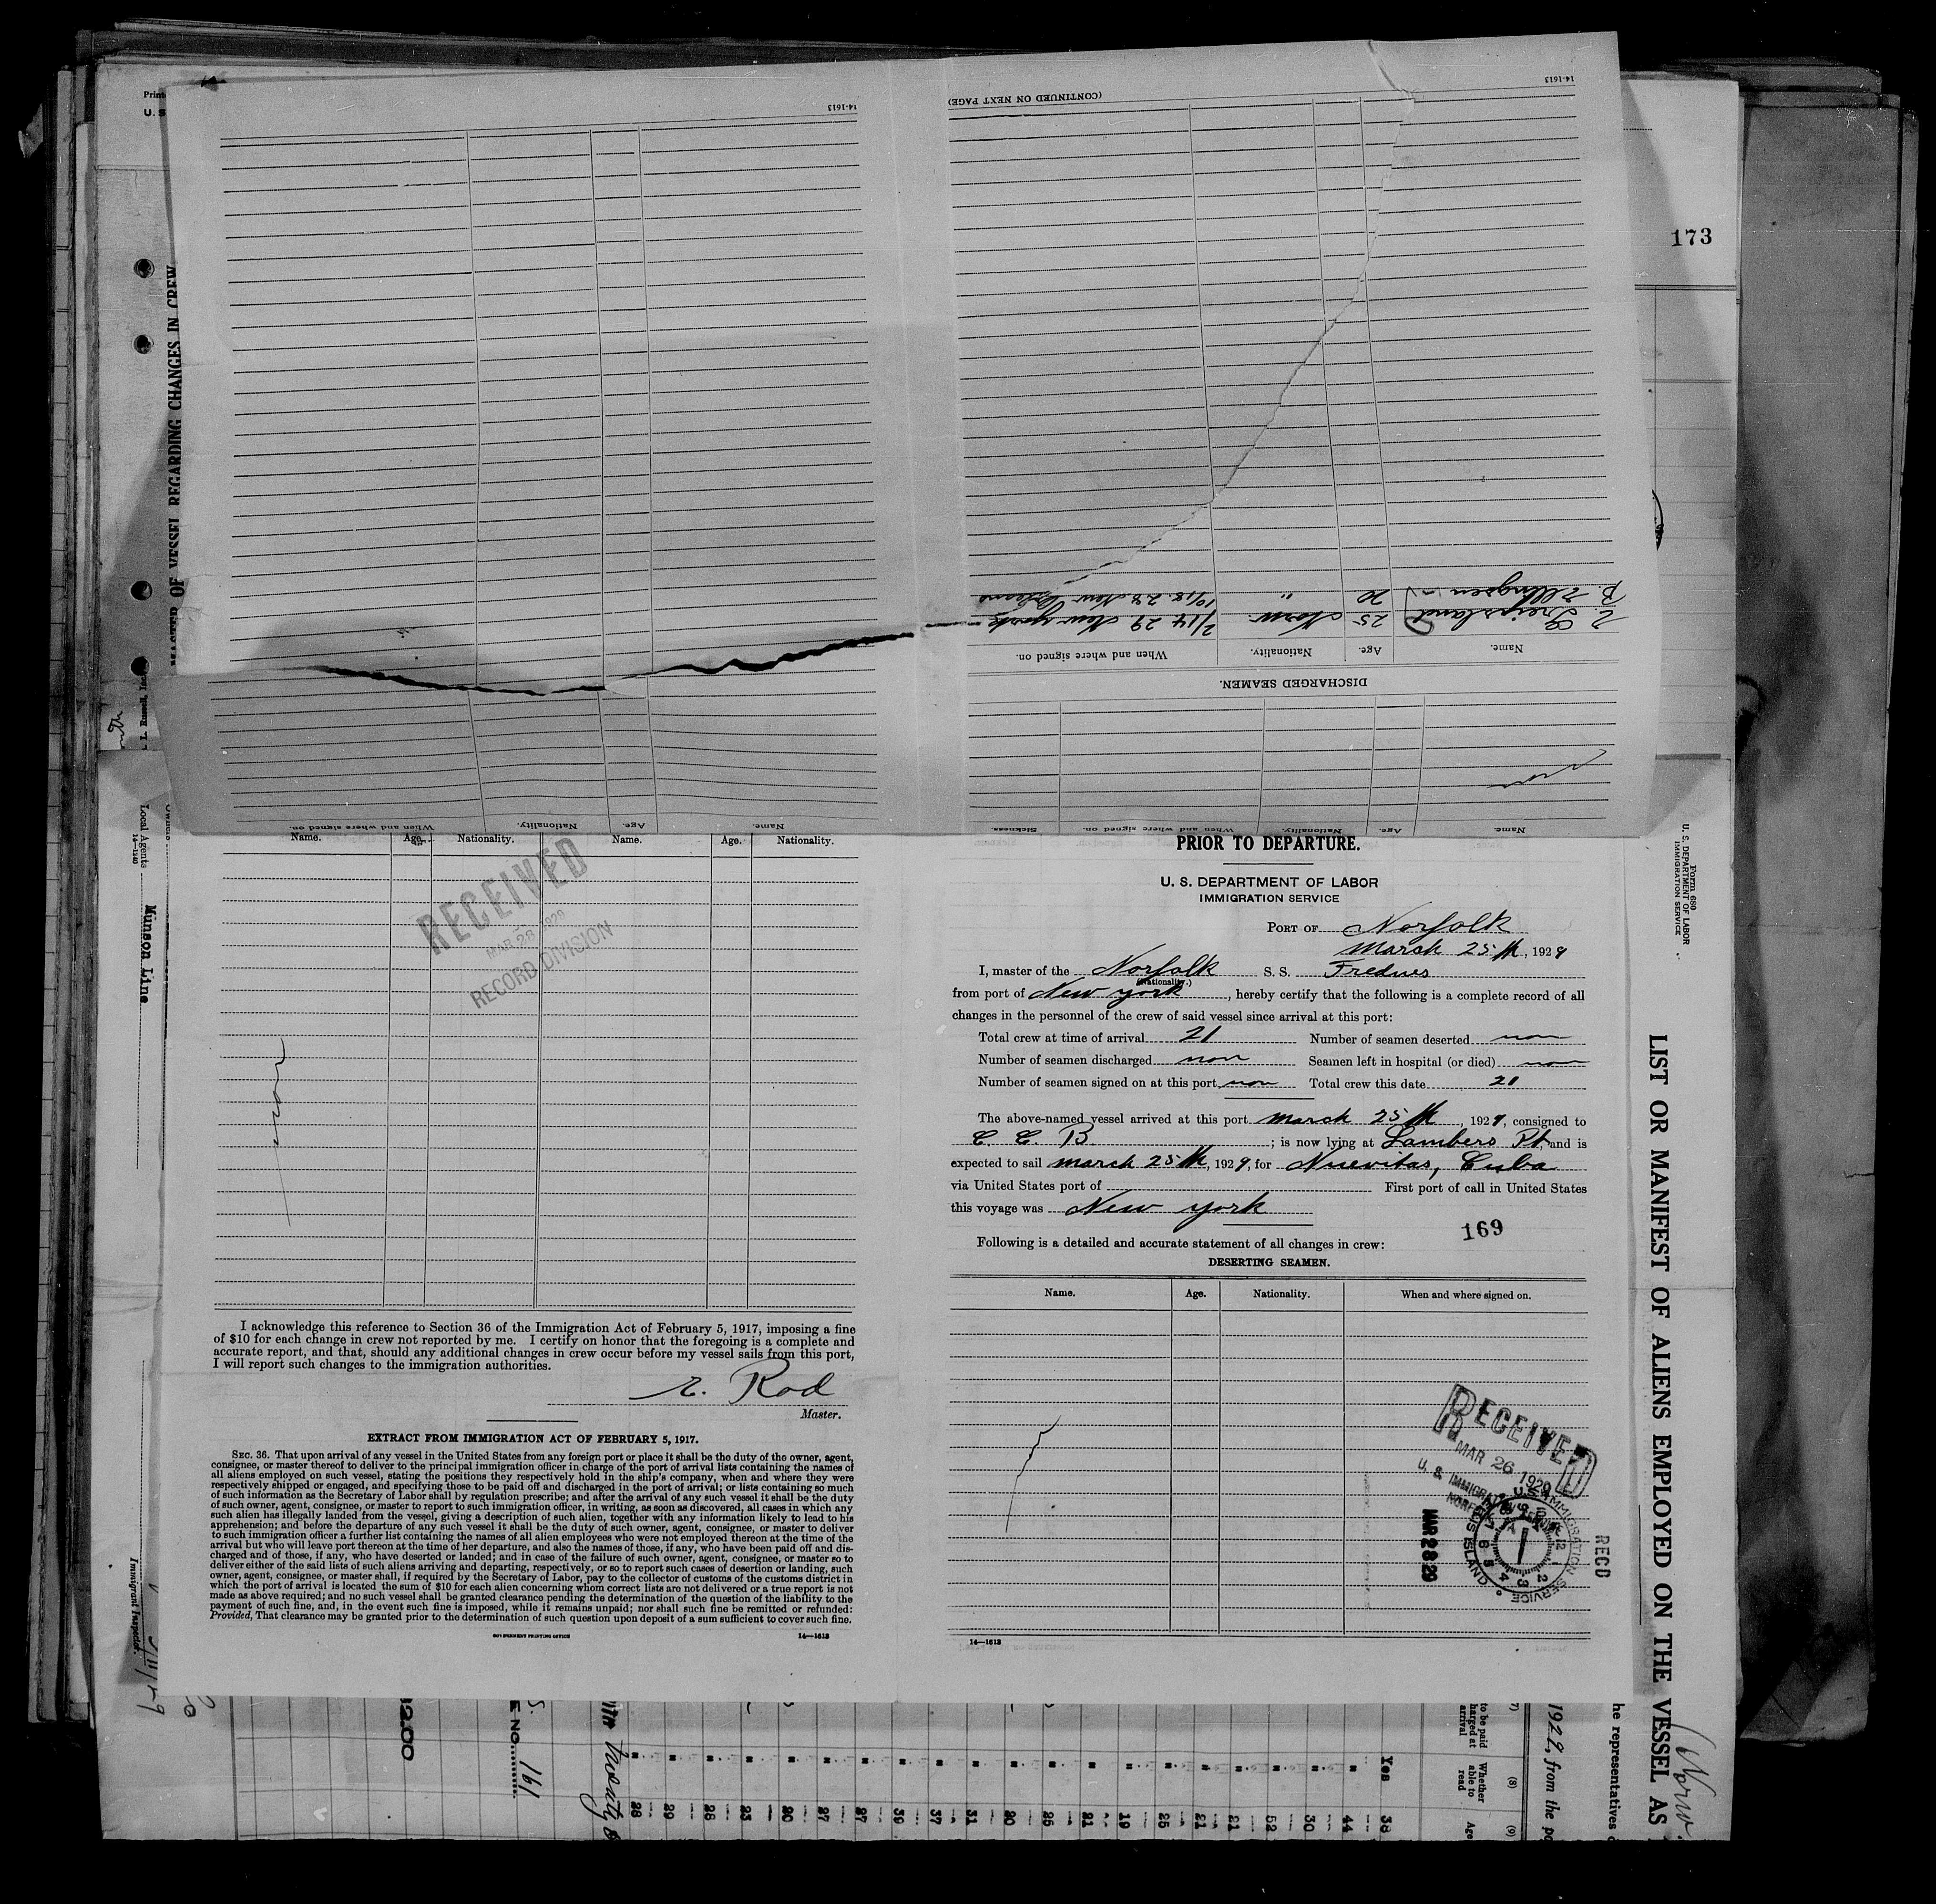 173
14-1613
(CONTINUED ON NEXT PAGE)
14-1613
MASTER OF VESSEL REGARDING CHANGES IN CREW
DISCHARGED SEAMEN.
Name. Age. Nationality. When and where signed on.
25 Norw. 2/14 29 New York
B. Ellingsen 20 " 10/18 28 New Orleans
Name. Age. Nationality. When and where signed on. Sickness.
Name. Age. Nationality. When and where signed on.
Name. Age. Nationality. Name. Age. Nationality.
RECEIVED
MAR 26 1929
RECORD DIVISION
non
I acknowledge this reference to Section 36 of the Immigration Act of February 5, 1917, imposing a fine
of $10 for each change in crew not reported by me. I certify on honor that the foregoing is a complete and
accurate report, and that, should any additional changes in crew occur before my vessel sails from this port,
I will report such changes to the immigration authorities.
E. Rod
Master.
EXTRACT FROM IMMIGRATION ACT OF FEBRUARY 5, 1917.
SEC. 36. That upon arrival of any vessel in the United States from any foreign port or place it shall be the duty of the owner, agent,
consignee, or master thereof to deliver to the principal immigration officer in charge of the port of arrival lists containing the names of
all aliens employed on such vessel, stating the positions they respectively hold in the ship's company, when and where they were
respectively shipped or engaged, and specifying those to be paid off and discharged in the port of arrival; or lists containing so much
of such information as the Secretary of Labor shall by regulation prescribe; and after the arrival of any such vessel it shall be the duty
of such owner, agent, consignee, or master to report to such immigration officer, in writing, as soon as discovered, all cases in which any
such alien has illegally landed from the vessel, giving a description of such alien, together with any information likely to lead to his
apprehension; and before the departure of any such vessel it shall be the duty of such owner, agent, consignee, or master to deliver
to such immigration officer a further list containing the names of all alien employees who were not employed thereon at the time of the
arrival but who will leave port thereon at the time of her departure, and also the names of those, if any, who have been paid off and dis-
charged and of those, if any, who have deserted or landed; and in case of the failure of such owner, agent, consignee, or master so to
deliver either of the said lists of such aliens arriving and departing, respectively, or so to report such cases of desertion or landing, such
owner, agent, consignee, or master shall, if required by the Secretary of Labor, pay to the collector of customs of the customs district in
which the port of arrival is located the sum of $10 for each alien concerning whom correct lists are not delivered or a true report is not
made as above required; and no such vessel shall be granted clearance pending the determination of the question of the liability to the
payment of such fine, and, in the event such fine is imposed, while it remains unpaid; nor shall such fine be remitted or refunded:
Provided, That clearance may be granted prior to the determination of such question upon deposit of a sum sufficient to cover such fine.
GOVERNMENT PRINTING OFFICE 14—1613
PRIOR TO DEPARTURE.
U. S. DEPARTMENT OF LABOR
IMMIGRATION SERVICE
PORT OF Norfolk
March 25th, 1929
I, master of the Norfolk S. S. Frednes
(Nationality.)
from port of New york, hereby certify that the following is a complete record of all
changes in the personnel of the crew of said vessel since arrival at this port:
Total crew at time of arrival 21 Number of seamen deserted non
Number of seamen discharged non Seamen left in hospital (or died) non
Number of seamen signed on at this port non Total crew this date 21
The above-named vessel arrived at this port march 25th, 1929, consigned to
C. C. B. ; is now lying at Lambers Pt, and is
expected to sail march 25th, 1929, for Nuevitas, Cuba
via United States port of First port of call in United States
this voyage was New york
169
Following is a detailed and accurate statement of all changes in crew:
DESERTING SEAMEN.
Name. Age. Nationality. When and where signed on.
RECEIVED
MAR 26 1929
U. S. IMMIGRATION SERVICE
RECD
MAR 28 29
14—1613
Form 680
U. S. DEPARTMENT OF LABOR
IMMIGRATION SERVICE
LIST OR MANIFEST OF ALIENS EMPLOYED ON THE VESSEL AS
Norw.
Local Agents Munson Line
14—1240
Immigrant Inspector.
he representatives
1929, from the po
(7) (8) (9)
to be paid
arrival
Whether
able to
read
Age
Yes
38 44 30 52 21 21 25 19 21 25 20 31 37 39 27 27 20 23 25 29 28
E NO. 161